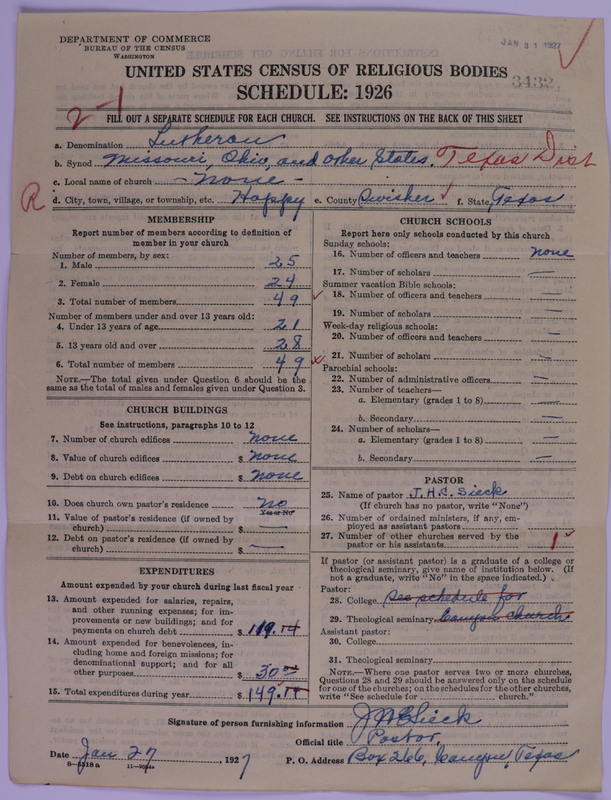 DEPARTMENT OF COMMERCE
BUREAU OF THE CENSUS
WASHINGTON
JAN 31 1927
UNITED STATES CENSUS OF RELIGIOUS BODIES
SCHEDULE: 1926
3432
FILL OUT A SEPARATE SCHEDULE FOR EACH CHURCH. SEE INSTRUCTIONS ON THE BACK OF THIS SHEET
a. Denomination Lutheran
b. Synod Missouri, Ohio, and other States. Texas Dist
c. Local name of church - none -
R
d. City, town, village, or township, etc. Happy e. County Swisher f. State Texas
MEMBERSHIP
Report number of members according to definition of
member in your church
Number of members, by sex:
1. Male 25
2. Female 24
3. Total number of members 49
Number of members under and over 13 years old:
4. Under 13 years of age 21
5. 13 years old and over 28
6. Total number of members 49
NOTE.—The total given under Question 6 should be the
same as the total of males and females given under Question 3.
CHURCH BUILDINGS
See instructions, paragraphs 10 to 12
7. Number of church edifices none
8. Value of church edifices $ none
9. Debt on church edifices $ none
10. Does church own pastor's residence no
Yes or No
11. Value of pastor's residence (if owned by
church) $ —
12. Debt on pastor's residence (if owned by
church) $ —
EXPENDITURES
Amount expended by your church during last fiscal year
13. Amount expended for salaries, repairs,
and other running expenses; for im-
provements or new buildings; and for
payments on church debt $ 119.
14. Amount expended for benevolences, in-
cluding home and foreign missions; for
denominational support; and for all
other purposes $ 30
15. Total expenditures during year $ 149.
CHURCH SCHOOLS
Report here only schools conducted by this church
Sunday schools:
16. Number of officers and teachers none
17. Number of scholars —
Summer vacation Bible schools:
18. Number of officers and teachers —
19. Number of scholars —
Week-day religious schools:
20. Number of officers and teachers —
21. Number of scholars —
Parochial schools:
22. Number of administrative officers —
23. Number of teachers—
a. Elementary (grades 1 to 8) —
b. Secondary —
24. Number of scholars—
a. Elementary (grades 1 to 8) —
b. Secondary —
PASTOR
25. Name of pastor J.H.C. Sieck
(If church has no pastor, write "None")
26. Number of ordained ministers, if any, em-
ployed as assistant pastors
27. Number of other churches served by the
pastor or his assistants 1
If pastor (or assistant pastor) is a graduate of a college or
theological seminary, give name of institution below. (If
not a graduate, write "No" in the space indicated.)
Pastor:
28. College See schedule for
29. Theological seminary Canyon church
Assistant pastor:
30. College
31. Theological seminary
NOTE.—Where one pastor serves two or more churches,
Questions 28 and 29 should be answered only on the schedule
for one of the churches; on the schedules for the other churches,
write "See schedule for church."
Signature of person furnishing information JHC Sieck
Official title Pastor
Date Jan 27, 1927 P. O. Address Box 266, Canyon, Texas